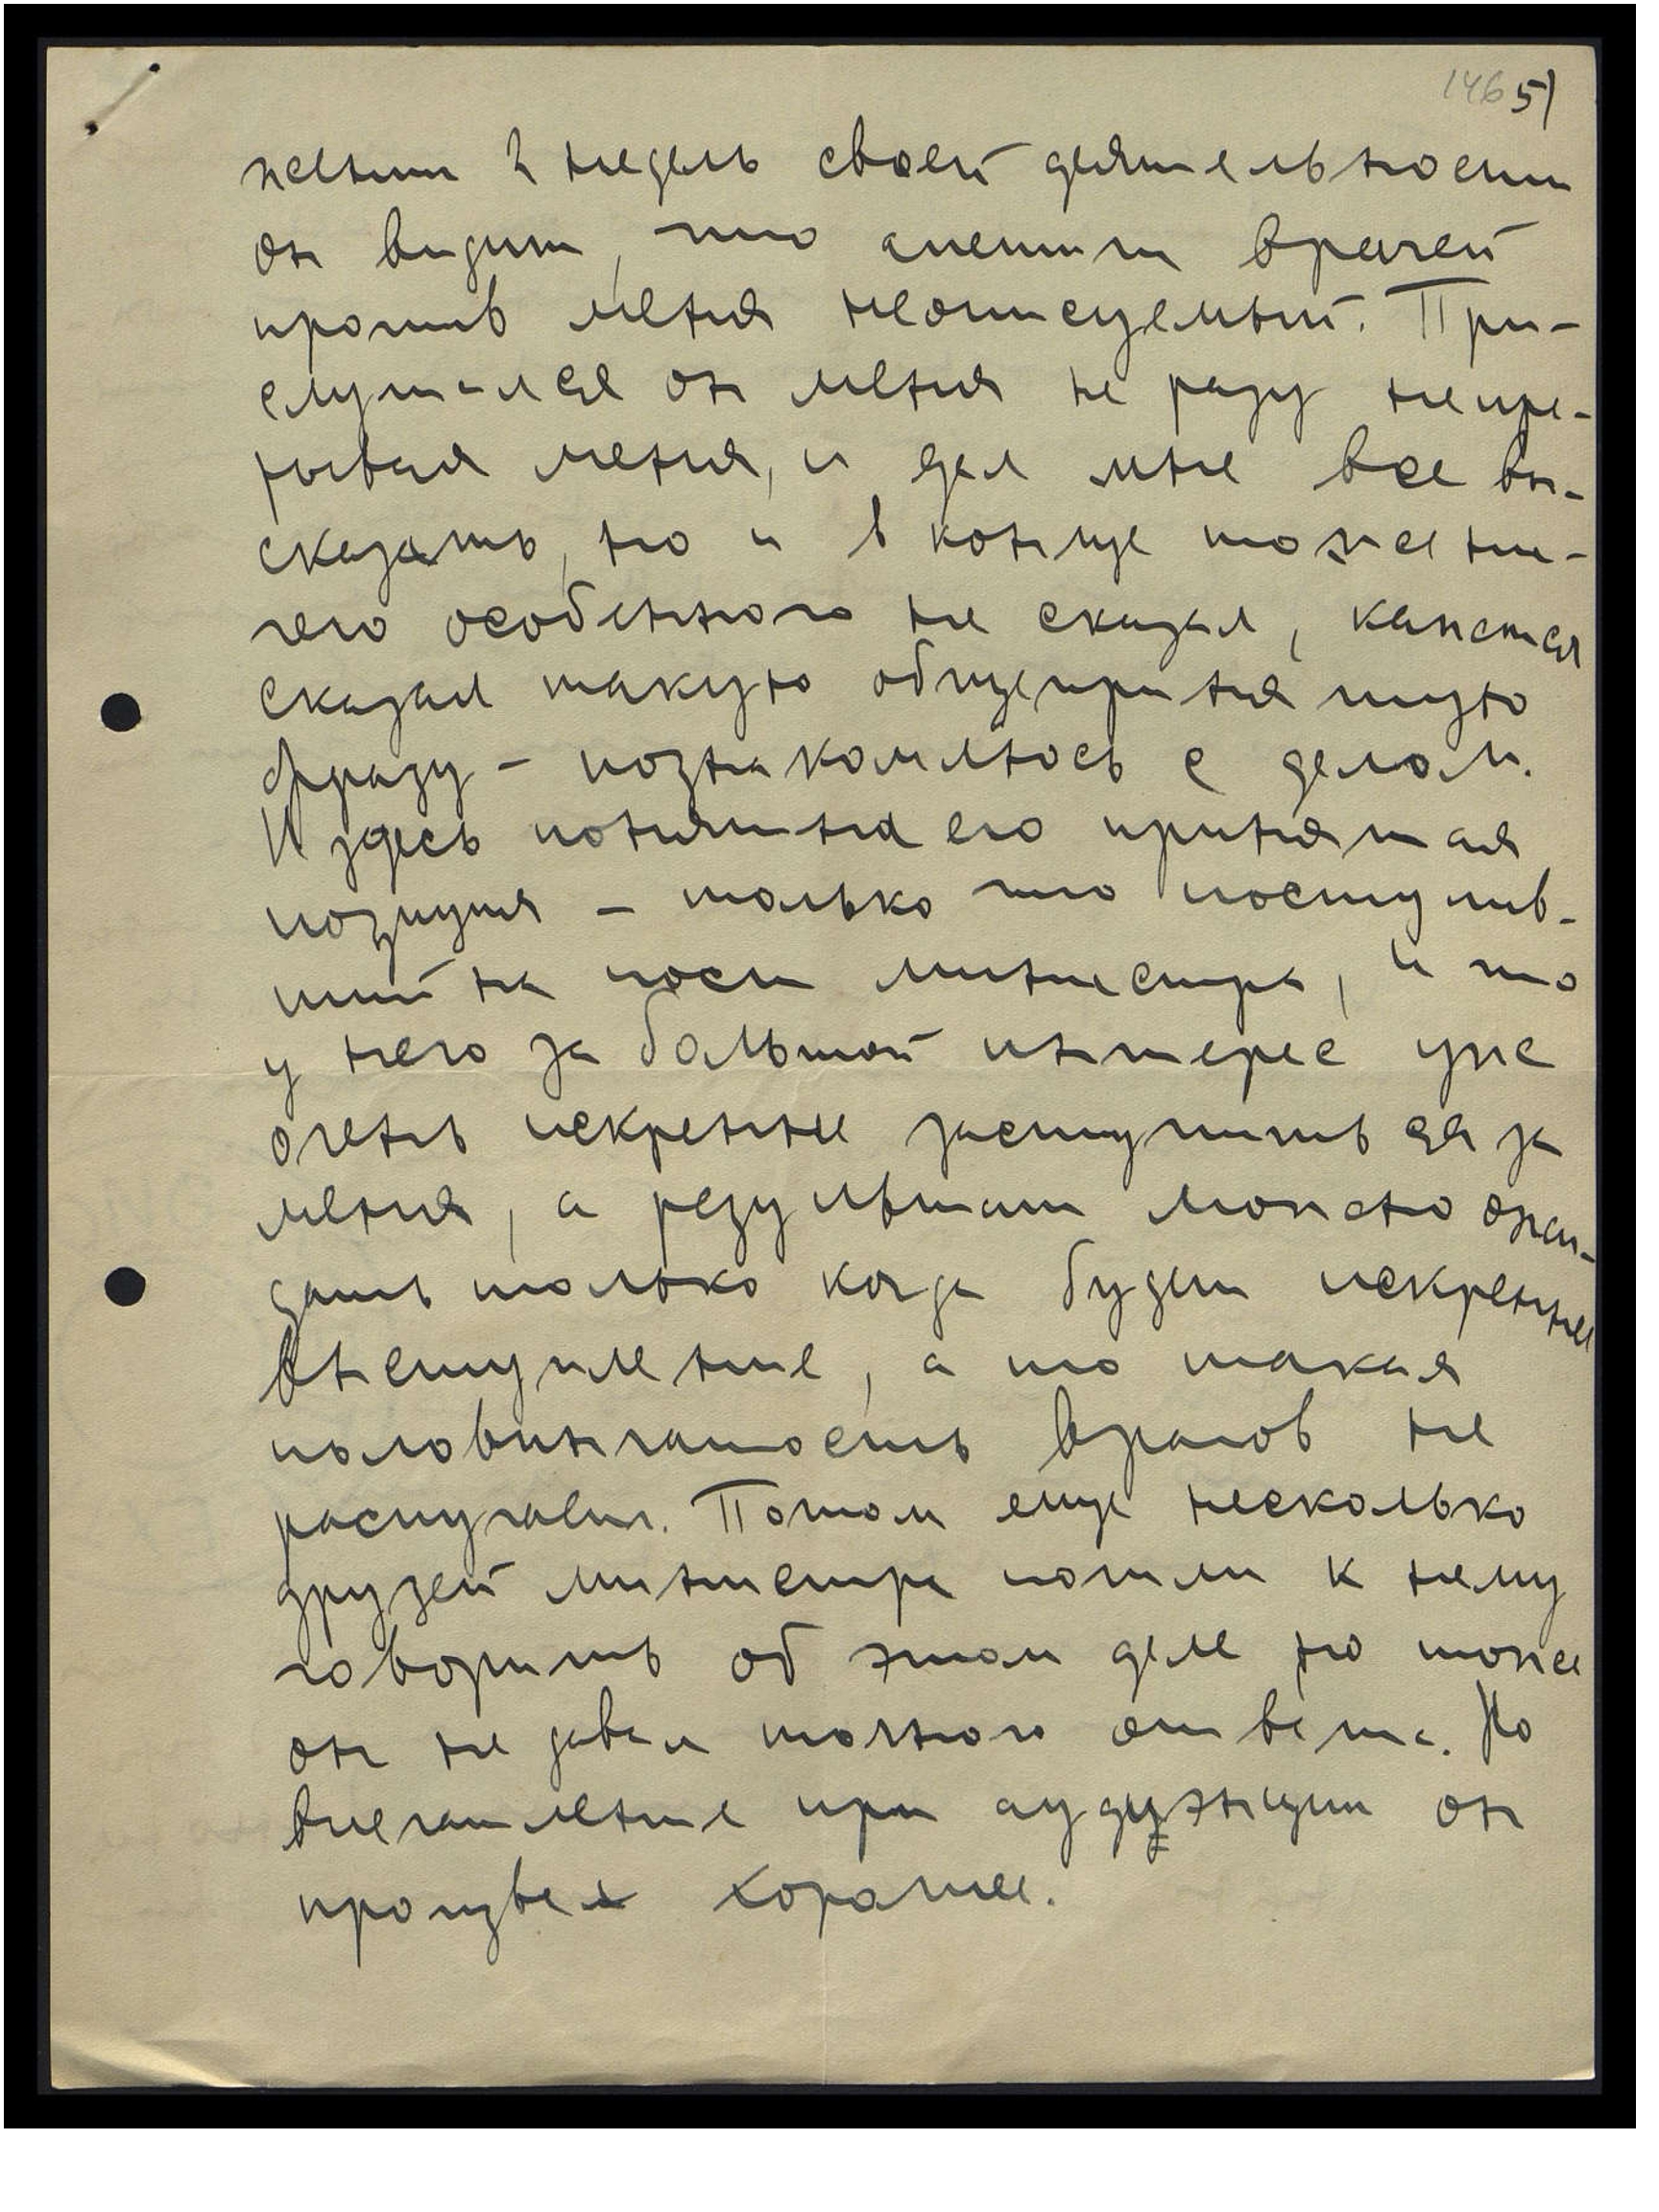 146 5)
жении 2 недель своей деятельности
он видит, что апетит врачей
против меня неописуемый. При-
слушался он меня не разу непре-
рывая меня, и дал мне все вы-
сказать, но и в конце тоже ни-
чего особенного не сказал, кажется
сказал такую общепринятую
фразу – познакомлюсь с делом.
И здесь понятна его принятая
позиция – только что поступив-
ший на пост министра, и что
у него за большой интерес уже
очень искренне заступиться за
меня, а результат можно ожи-
дать только когда будет искреннее
вступление, а то такая
половинчатость врагов не
распугает. Потом еще несколько
друзей министра пошли к нему
говорить об этом деле но тоже
он не давал точного ответа. Но
впечатление при аудиэнции он
произвел хорошее.